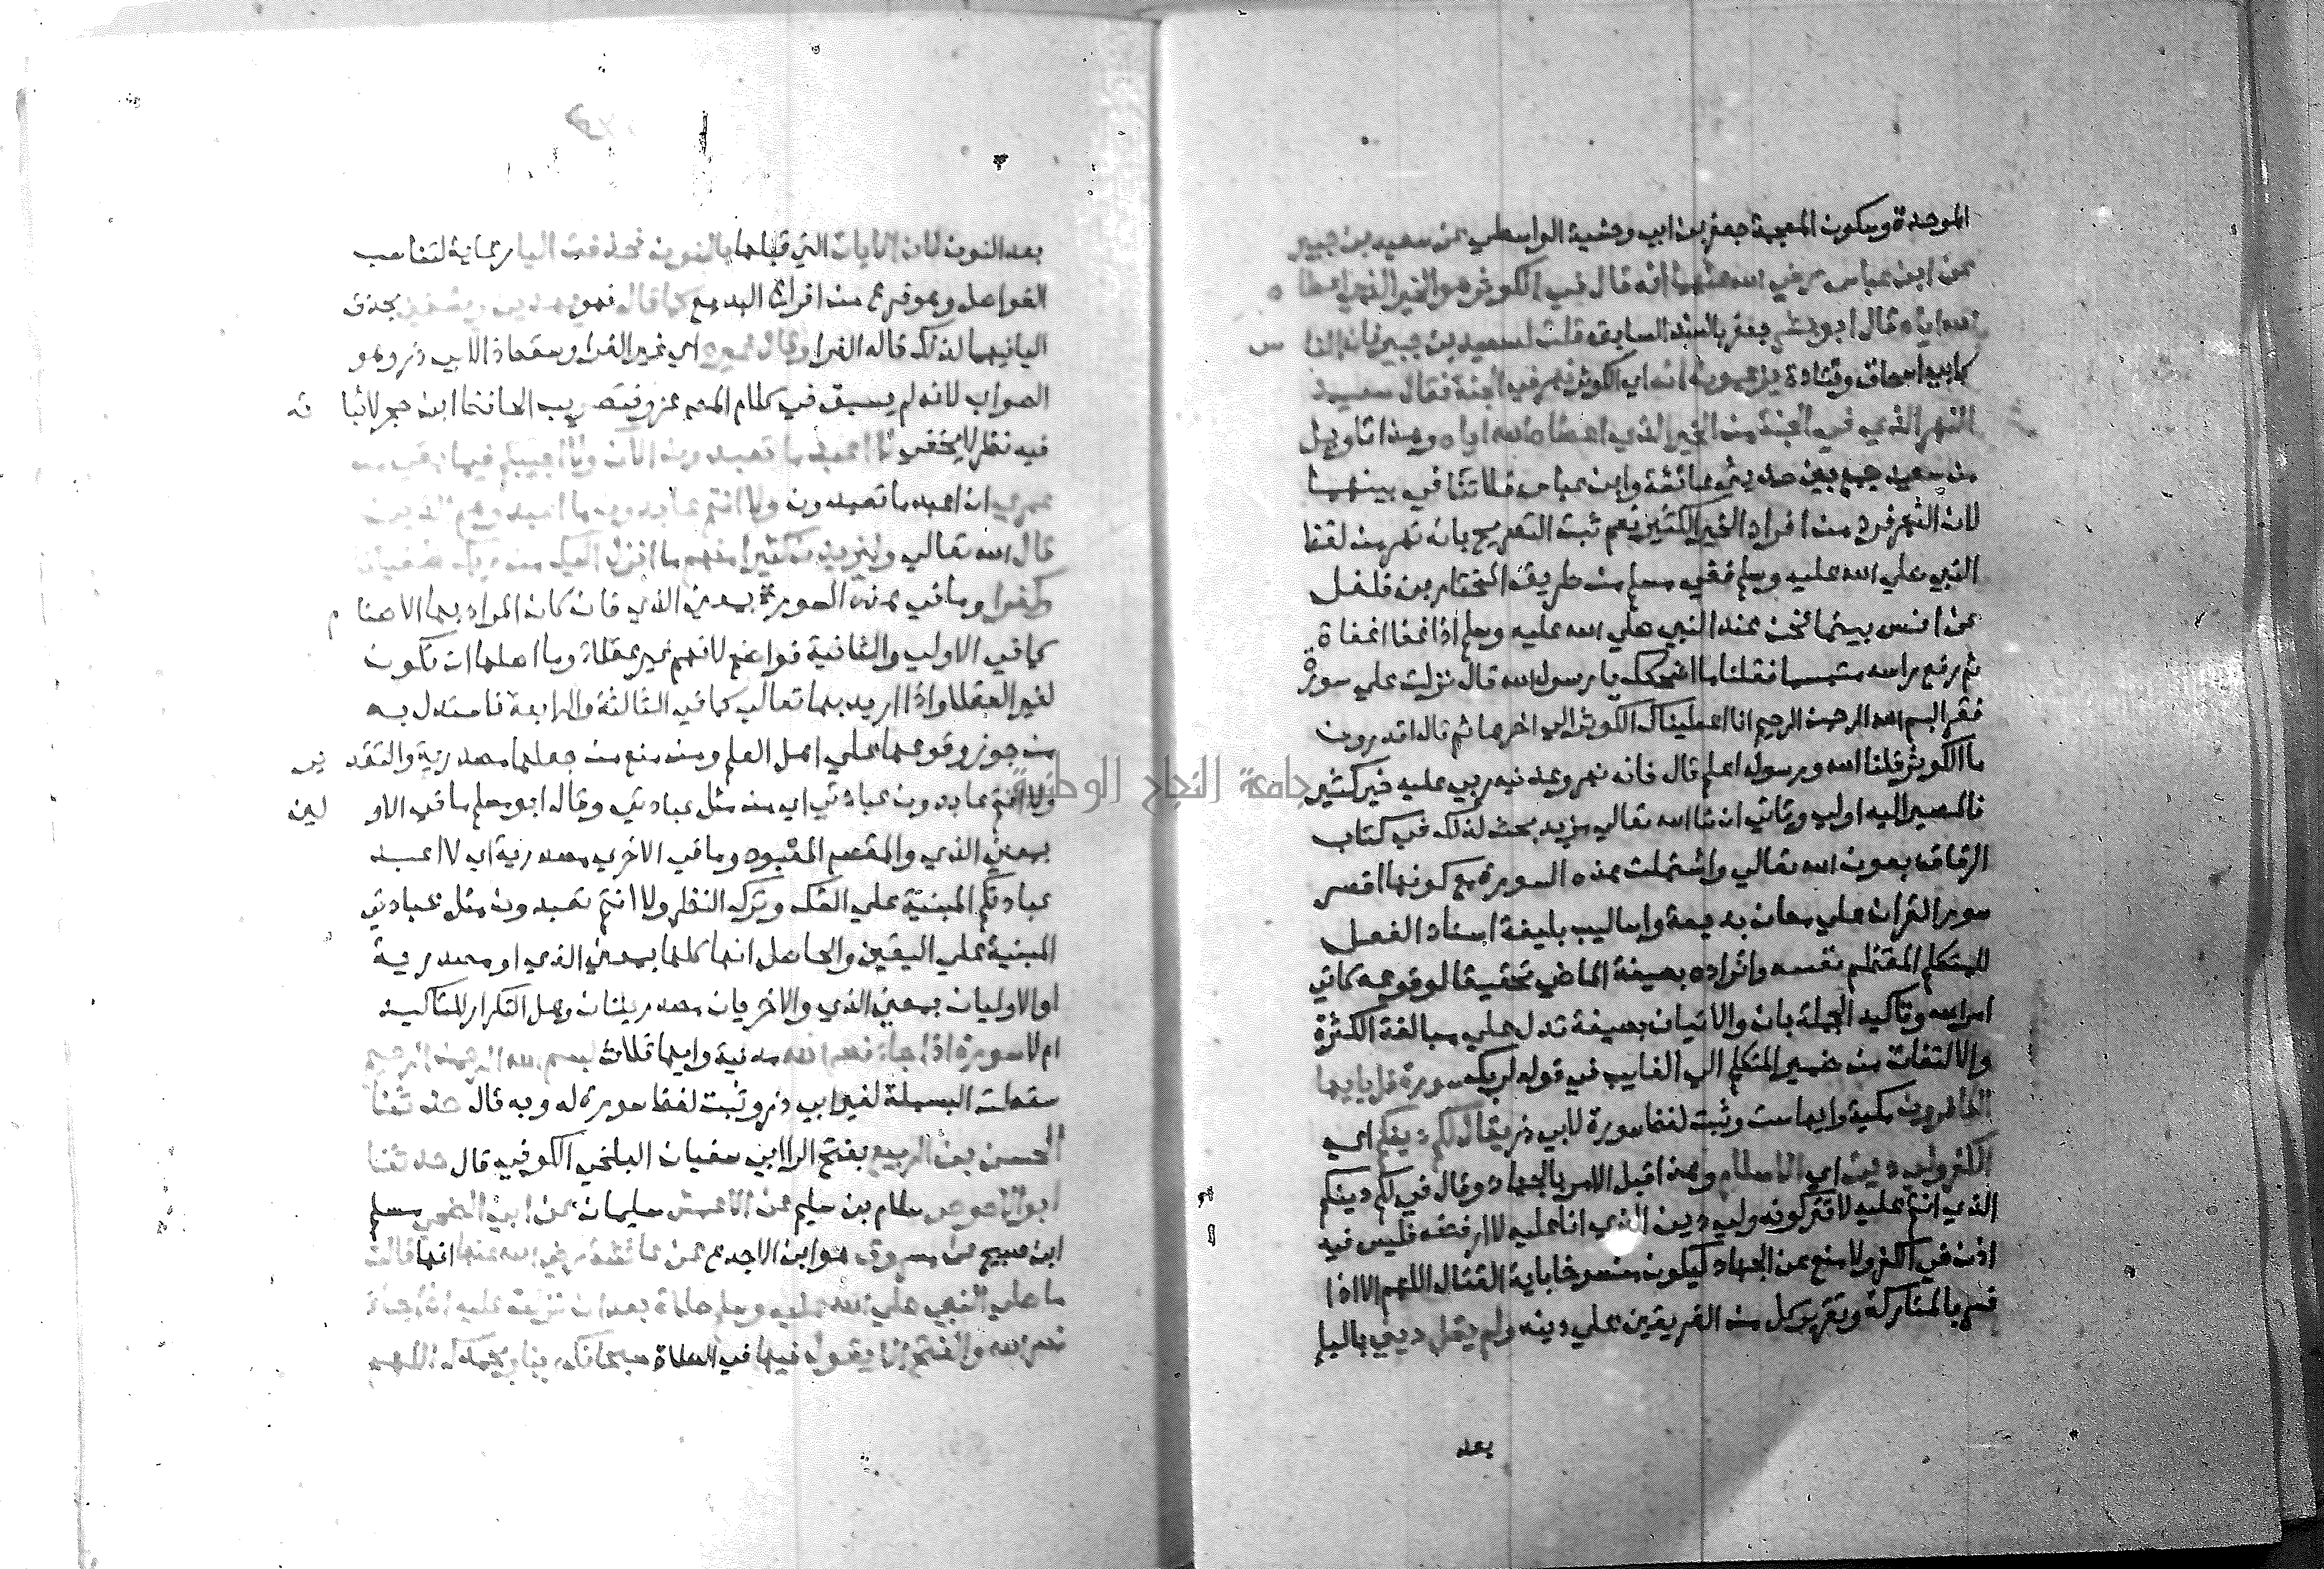 الموحدة وسكون المعجمة جعفر بن ابي وحشية الواسطي عن سعيد بن جبير
عن ابن عباس رضي الله عنهما انه قال في الكوثر هو الخير الذي اعطا ه
الله اياه قال ابو بشر جعفر بالسند السابق قلت لسعيد بن جبير فان النا س
كابي اسحاق وقتادة يزعمون انه اي الكوثر نهر في الجنة فقال سعيد
النهر الذي في الجنة من الخير الذي اعطاه الله اياه وهذا تاويل
من سعيد جمع بين حديثي عائشة وابن عباس فلا تنافي بينهما
لان النهر فرد من افراد الخير الكثير نعم ثبت التصريح بانه نهر من لفظ
النبي صلي الله عليه وسلم ففي مسلم من طريق المختار بن فلفل
عن انس بينما نحن عند النبي صلي الله عليه وسلم اذ اغفا اغفاة
ثم رفع راسه متبسما فقلنا ما اضحكك يا رسول الله قال نزلت علي سورة
فقرا بسم الله الرحمن الرحيم انا اعطيناك الكوثر الي اخرها ثم قال اتدرون
ما الكوثر قلنا الله ورسوله اعلم قال فانه نهر وعدنيه ربي عليه خير كثير
فالمصير اليه اولي وياتي ان شا الله تعالي مزيد بحث لذلك في كتاب
الرقاق بعون الله تعالي واشتملت هذه السورة مع كونها اقصر
سور القران علي معان بديعة واساليب بليغة اسناد الفعل
للمتكلم المعظم نفسه وايراده بصيغة الماضي تحقيقا لوقوعه كاتي
امر الله وتاكيد الجملة بان والاتيان بصيغة تدل علي مبالغة الكثرة
والالتفات من ضمير المتكلم الي الغايب في قوله لربك سورة قل يا ايها
الكافرون مكية وايها ست وثبت لفظ سورة لابي ذر يقال لكم دينكم اي
الكفر ولي دين اي الاسلام وهذا قبل الامر بالجهاد وقال في لكم دينكم
الذي انتم عليه لا تتركونه ولي دين الذي انا عليه لا ارفضه فليس فيه
اذن في الكفر ولا منع عن الجهاد ليكون منسوخا باية القتال اللهم الا اذا
فسر بالمتاركة وتقرير كل من الفريقين علي دينه ولم يقل ديني باليا
بعد
بعد النون لان الايات التي قبلها بالنون فحذفت اليا رعاية لتناسب
الفواصل وهو نوع من انواع البديع كما قال فهو يهدين ويشفين بحذف
اليا فيهما لذلك قاله الفرا وقال غيره اي غير الفرا وسقط ذا لابي ذر وهو
الصواب لانه لم يسبق في كلام المص عزو فتصويب الحافظ ابن حجر لاثبا ته
فيه نظر لا يخفي لا اعبد ما تعبدون الان ولا اجيبكم فيما بقي من
عمري ان اعبد ما تعبدون ولا انتم عابدون ما اعبد وهم الذين
قال الله تعالي وليزيدن كثيرا منهم ما انزل اليك من ربك طغيانا
وكفرا وما في هذه السورة بمعني الذي فان كان المراد بها الاصنا م
كما في الاولي والثانية فواضح لانهم غير عقلاء وما اصلها ان تكون
لغير العقلا واذا اريد بها تعالي كما في الثالثة والرابعة فاستدل به
من جوز وقوعها علي اهل العلم ومن منع من جعلها مصدرية والتقد ير
ولا انتم عابدون عبادتي اي من مثل عبادتي وقال ابو مسلم ما في الاو لين
بمعني الذي والمقصود المعبود وما في الاخري مصدرية اي لا اعبد
عبادتكم المبنية علي الشك وترك النظر ولا انتم تعبدون مثل عبادتي
المبنية علي اليقين والحاصل انها كلها بمعني الذي او مصدرية
او الاوليان بمعني الذي والاخريان مصدريتان وهل التكرار للتاكيد
ام لا سورة اذا جاء نصر الله مدنية وايها ثلاث بسم الله الرحمن الرحيم
سقطت البسملة لغير ابي ذر وثبت لفظ سورة له وبه قال حدثنا
الحسن بن الربيع بفتح الرا ابن سفيان البلخي الكوفي قال حدثنا
ابو الاحوص سلام بن سليم عن الاعمش سليمان عن ابي الضحي مسلم
ابن صبيح عن مسروق هو ابن الاجدع عن عائشة رضي الله عنها انها قالت
ما صلي النبي صلي الله عليه وسلم صلاة بعد ان نزلت عليه اذا جاء
نصر الله والفتح الا يقول فيها في الصلاة سبحانك ربنا وبحمدك اللهم
جامعة النجاح الوطنية